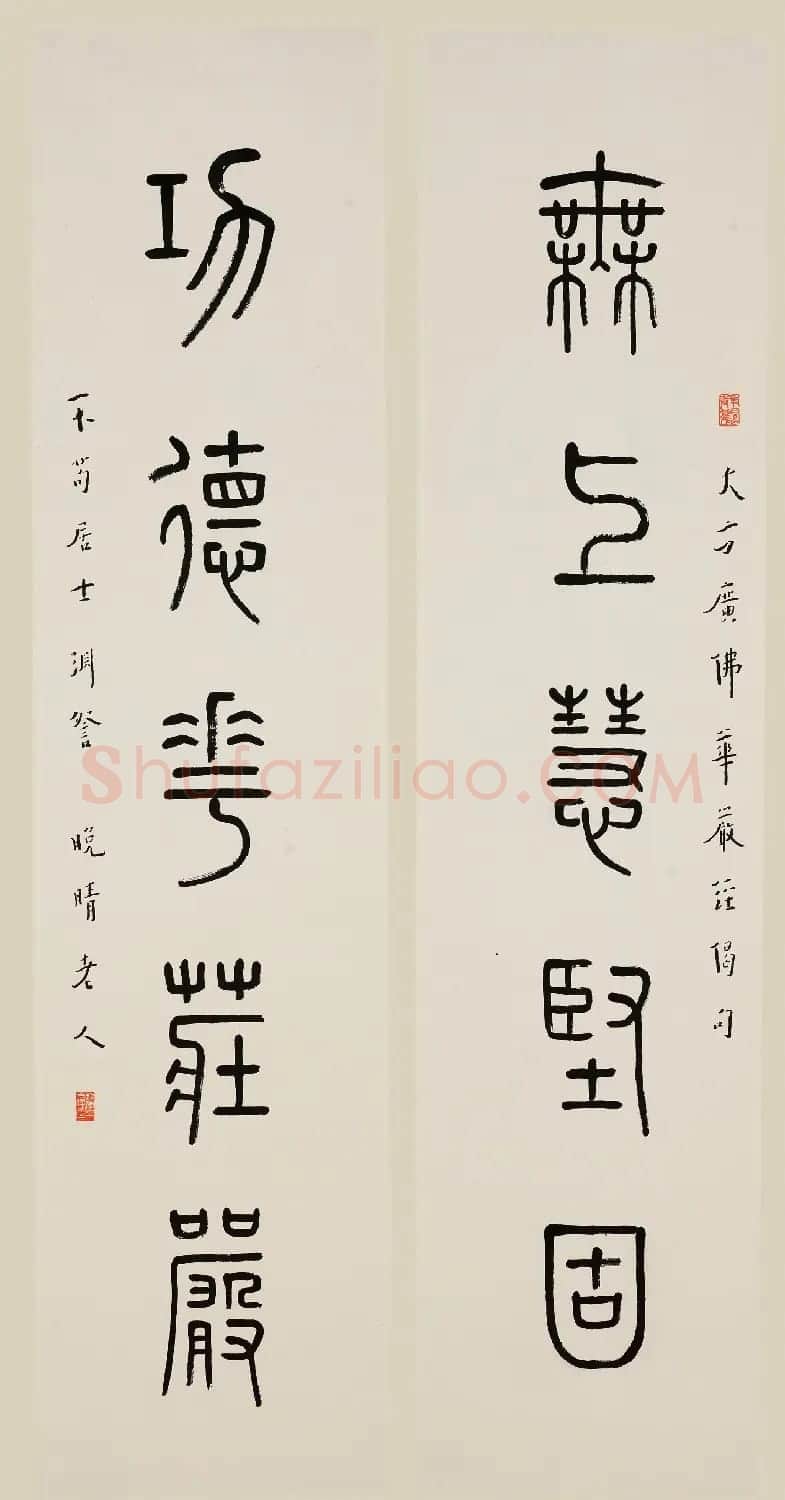 大方廣佛華嚴經偈句
無上慧堅固
功德華莊嚴
不苟居士淵詧 晚晴老人
Shufaziliao.COM